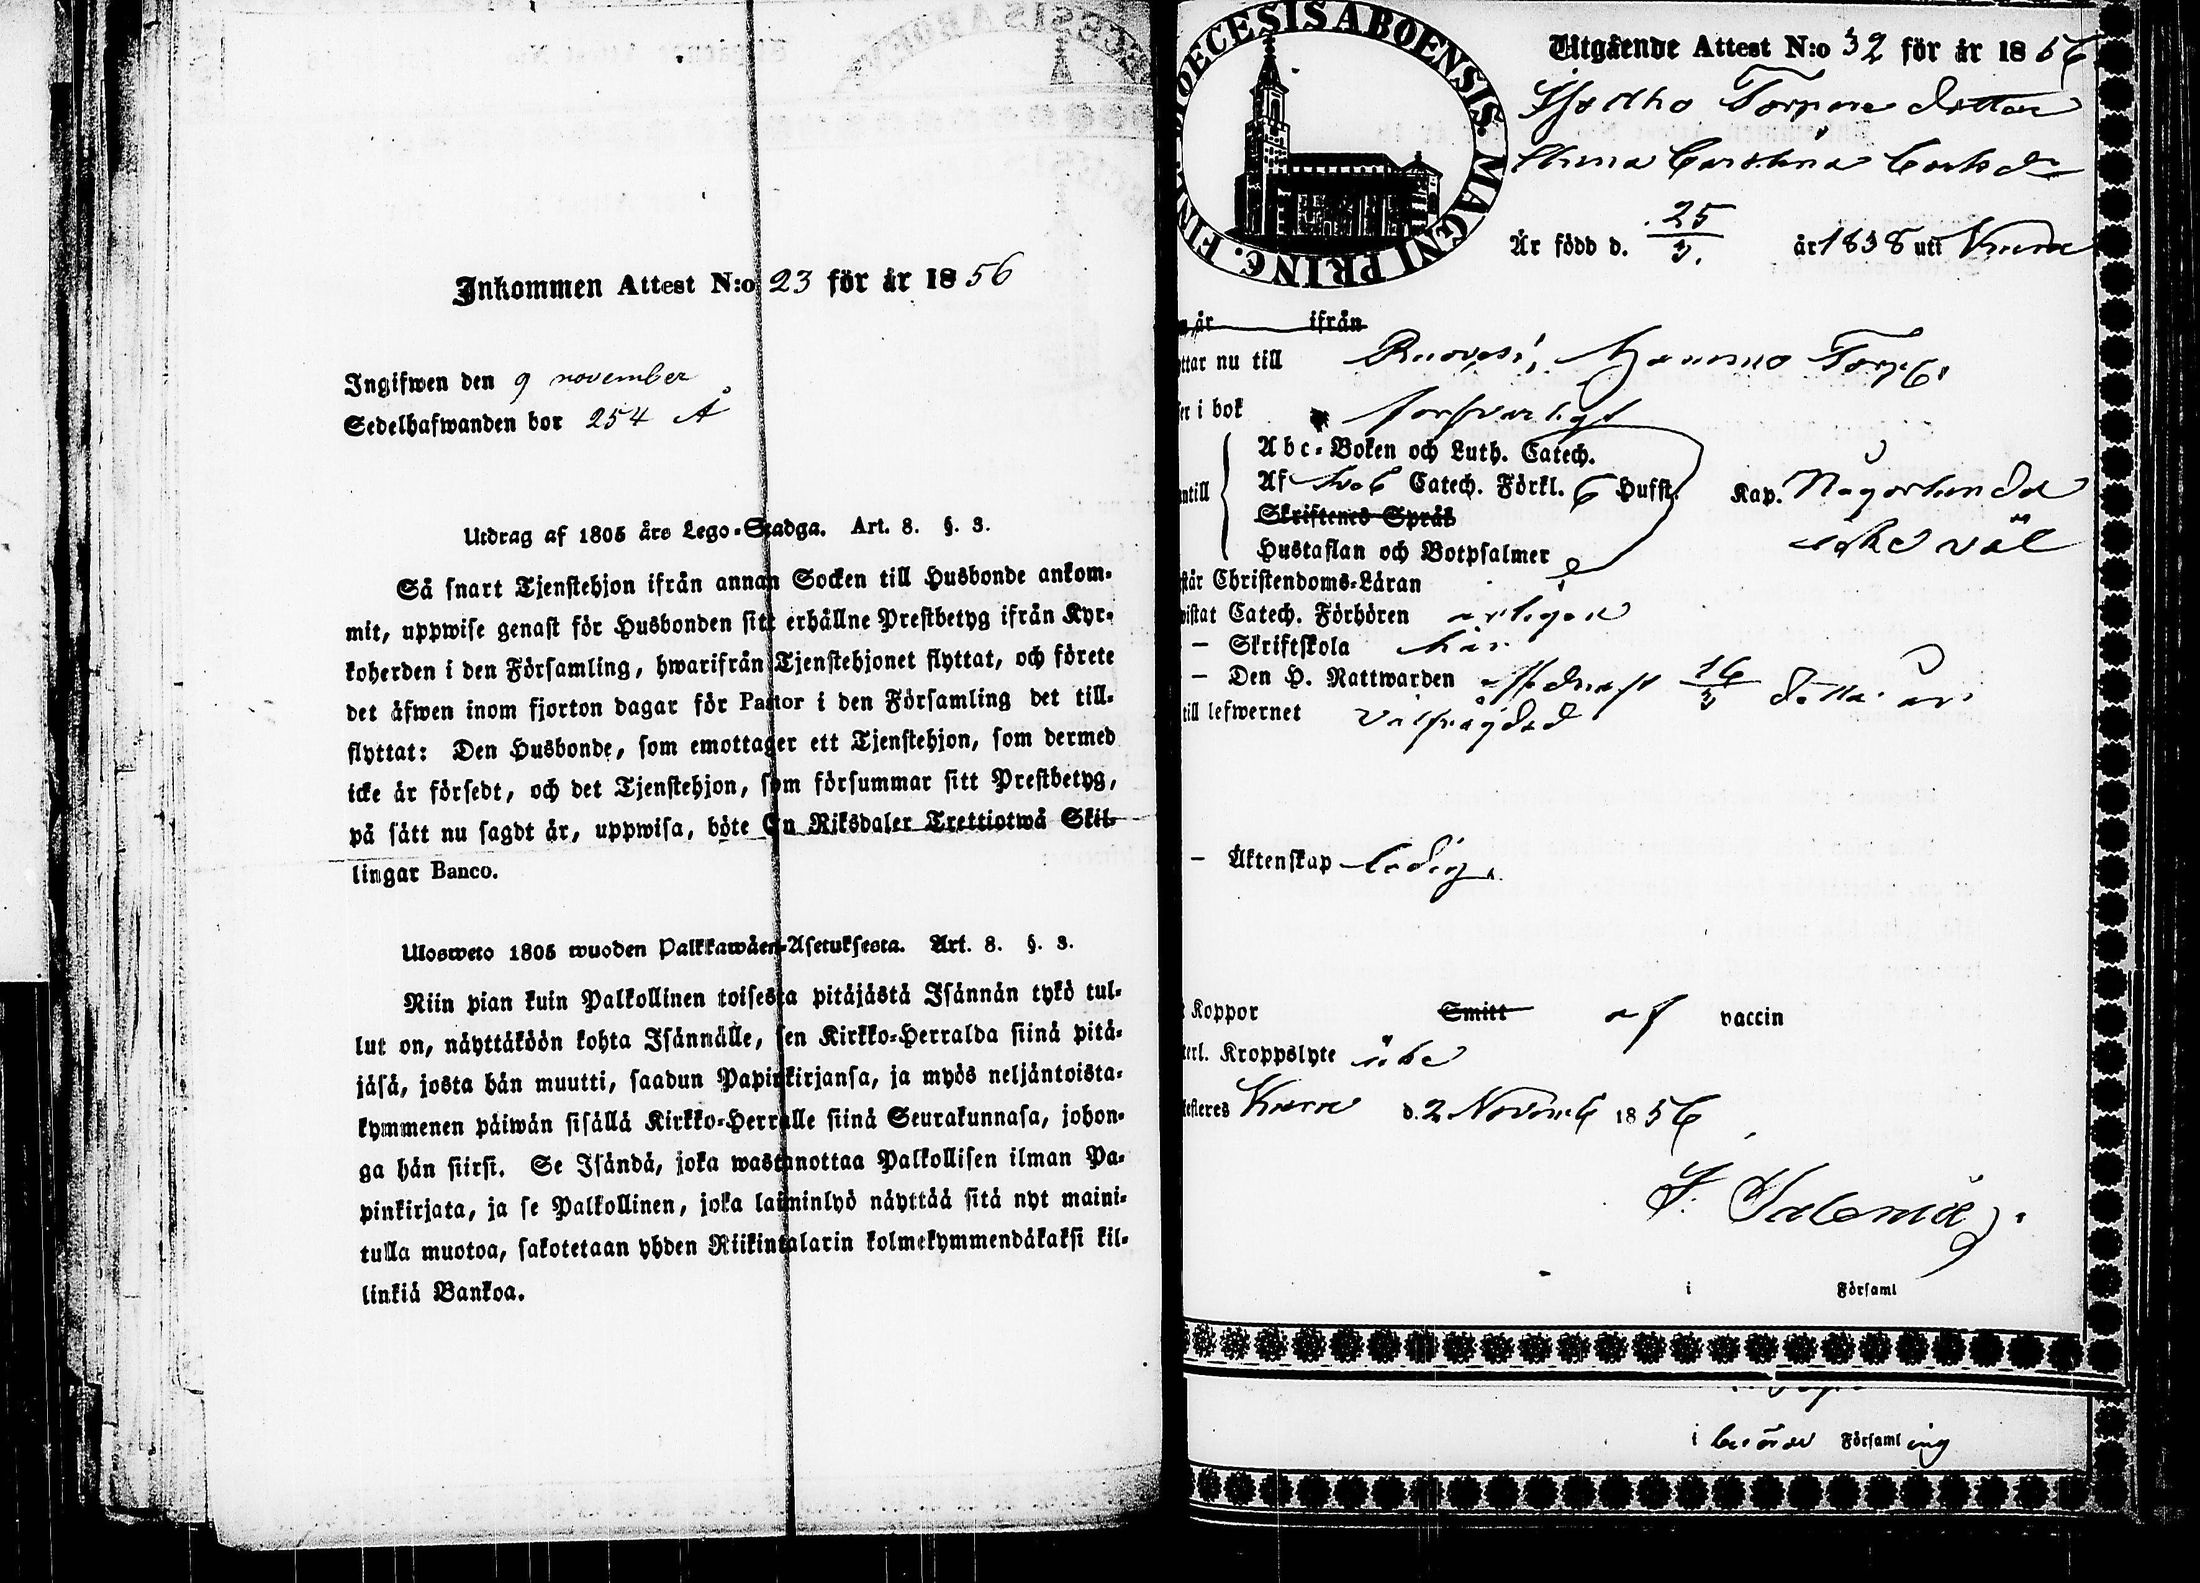 Inkommen Attest N:o 23 för år 1856
Ingifwen den 9 november
Sedelhafwanden bor 254 Å
Utdrag af 1805 års Lego-Stadga. Art. 8. §. 3.
Så snart Tjenstehjon ifrån annan Socken till Husbonde ankom-
mit, uppwise genast för Husbonden sitt erhållne Prestbetyg ifrån Kyr-
koherden i den Församling, hwarifrån Tjenstehjonet flyttat, och förete
det äfwen inom fjorton dagar för Pastor i den Församling det till-
flyttat: Den Husbonde, som emottager ett Tjenstehjon, som dermed
icke är försedt, och det Tjenstehjon, som försummar sitt Prestbetyg,
på sätt nu sagdt är, uppwisa, böte En Riksdaler Trettiotwå Skil-
lingar Banco.
Ulosweto 1805 wuoden Palkkawäen-Asetuksesta. Art. 8. §. 3.
Niin pian kuin Palkollinen toisesta pitäjästä Isännän tykö tul-
lut on, näyttäköön kohta Isännälle, sen Kirkko-Herralda siinä pitä-
jäsä, josta hän muutti, saadun Papinkirjansa, ja myös neljäntoista-
kymmenen päiwän sisällä Kirkko-Herralle siinä Seurakunnasa, johon-
ga hän siirsi. Se Isändä, joka wastanottaa Palkollisen ilman Pa-
pinkirjata, ja se Palkollinen, joka laiminlyö näyttää sitä nyt maini-
tulla muotoa, sakotetaan yhden Riikintalarin kolmekymmendäkaksi kil-
linkiä Bankoa.
DIOECESIS ABOENSIS. MAGNI PRINC. FINL.
Utgående Attest N:o 32 för år 1856
Torpare dotter
Anna Carolina Carlsdr
Är född d. 25/3. år 1838 uti
år ifrån
ttar nu till Ruovesi, Torp.
er i bok försvarligt
Abc-Boken och Luth. Catech.
ntill Af Catech. Förkl. 6 Hufst. Kap. Någorlunda
Skriftenes Språk icke väl
Hustaflan och Botpsalmer
står Christendoms-Läran
wistat Catech. Förhören årligen
— Skriftskola här
— Den H. Nattwarden sednast 16/3 detta år
till lefwernet välfrägdad
— Äktenskap ledig.
Koppor Smitt af vaccin
terl. Kroppslyte icke
testeres d. 2 Novemb 1856
i Församl
i Församling